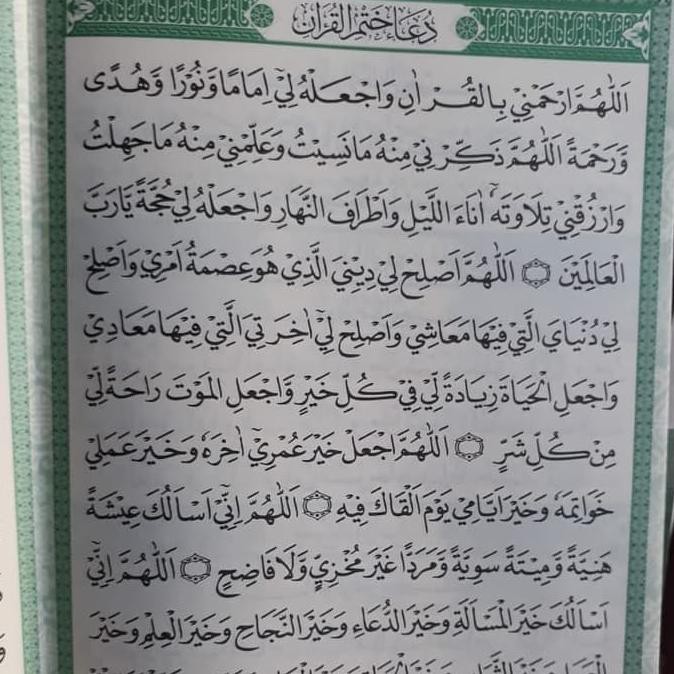 دُعَاءُ خَتْمِ الْقُرْاٰنِ
اَللّٰهُمَّ ارْحَمْنِيْ بِالْقُرْاٰنِ وَاجْعَلْهُ لِيْٓ اِمَامًا وَّنُوْرًا وَّهُدًى
وَّرَحْمَةً اَللّٰهُمَّ ذَكِّرْنِيْ مِنْهُ مَانَسِيْتُ وَعَلِّمْنِيْ مِنْهُ مَاجَهِلْتُ
وَارْزُقْنِيْ تِلَاوَتَهٗٓ اٰنَاءَ اللَّيْلِ وَاَطْرَافَ النَّهَارِ وَاجْعَلْهُ لِيْ حُجَّةً يَّارَبَّ
الْعَالَمِيْنَ ۝ اَللّٰهُمَّ اَصْلِحْ لِيْ دِيْنِيَ الَّذِيْ هُوَ عِصْمَةُ اَمْرِيْ وَاَصْلِحْ
لِيْ دُنْيَايَ الَّتِيْ فِيْهَا مَعَاشِيْ وَاَصْلِحْ لِيْٓ اٰخِرَتِيَ الَّتِيْ فِيْهَا مَعَادِيْ
وَاجْعَلِ الْحَيَاةَ زِيَادَةً لِّيْ فِيْ كُلِّ خَيْرٍ وَّاجْعَلِ الْمَوْتَ رَاحَةً لِّيْ
مِنْ كُلِّ شَرٍّ ۝ اَللّٰهُمَّ اجْعَلْ خَيْرَ عُمْرِيْٓ اٰخِرَهٗ وَخَيْرَ عَمَلِيْ
خَوَاتِمَهٗ وَخَيْرَ اَيَّامِيْ يَوْمَ اَلْقَاكَ فِيْهِ ۝ اَللّٰهُمَّ اِنِّيْٓ اَسْاَلُكَ عِيْشَةً
هَنِيَّةً وَّمِيْتَةً سَوِيَّةً وَّمَرَدًّا غَيْرَ مُخْزِيٍّ وَّلَا فَاضِحٍ ۝ اَللّٰهُمَّ اِنِّيْٓ
اَسْاَلُكَ خَيْرَ الْمَسْاَلَةِ وَخَيْرَ الدُّعَاءِ وَخَيْرَ النَّجَاحِ وَخَيْرَ الْعِلْمِ وَخَيْرَ